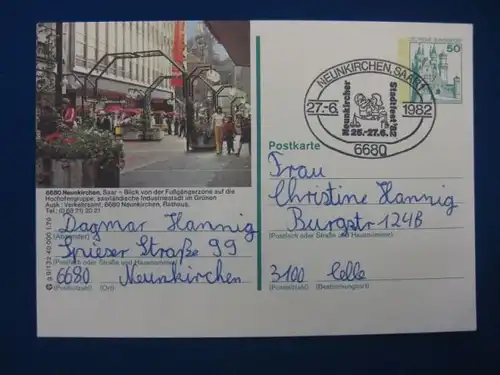 DEUTSCHE BUNDESPOST
50
NEUNKIRCHEN, SAAR 1
27.-6.
1982
Neunkircher
Stadtfest '82
25.-27.6.
6680
6680 Neunkirchen, Saar – Blick von der Fußgängerzone auf die
Hochofengruppe, saarländische Industriestadt im Grünen
Ausk.: Verkehrsamt, 6680 Neunkirchen, Rathaus,
Postkarte
Dagmar Hannig
(Absender)
Spieser Straße 99
(Postfach oder Straße und Hausnummer)
6680 Neunkirchen
(Postleitzahl) (Ort)
Frau
Christine Hannig
Burgstr 124B
(Postfach oder Straße und Hausnummer)
3100 Celle
(Postleitzahl) (Bestimmungsort)